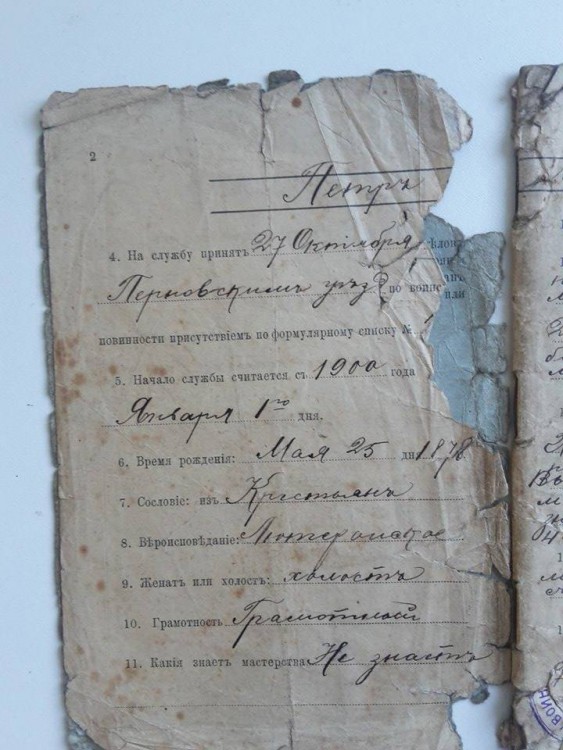 2
Петръ
4. На службу принятъ 27 Октября
Перновскимъ уѣзд по воинс
повинности присутствіемъ по формулярному списку №
5. Начало службы считается съ 1900 года
Января 1го дня.
6. Время рожденія: Мая 25 дн 1878
7. Сословіе: изъ Крестьянъ
8. Вѣроисповѣданіе: Лютеранское
9. Женатъ или холостъ: холостъ
10. Грамотность Грамотный
11. Какія знаетъ мастерства Не знаетъ